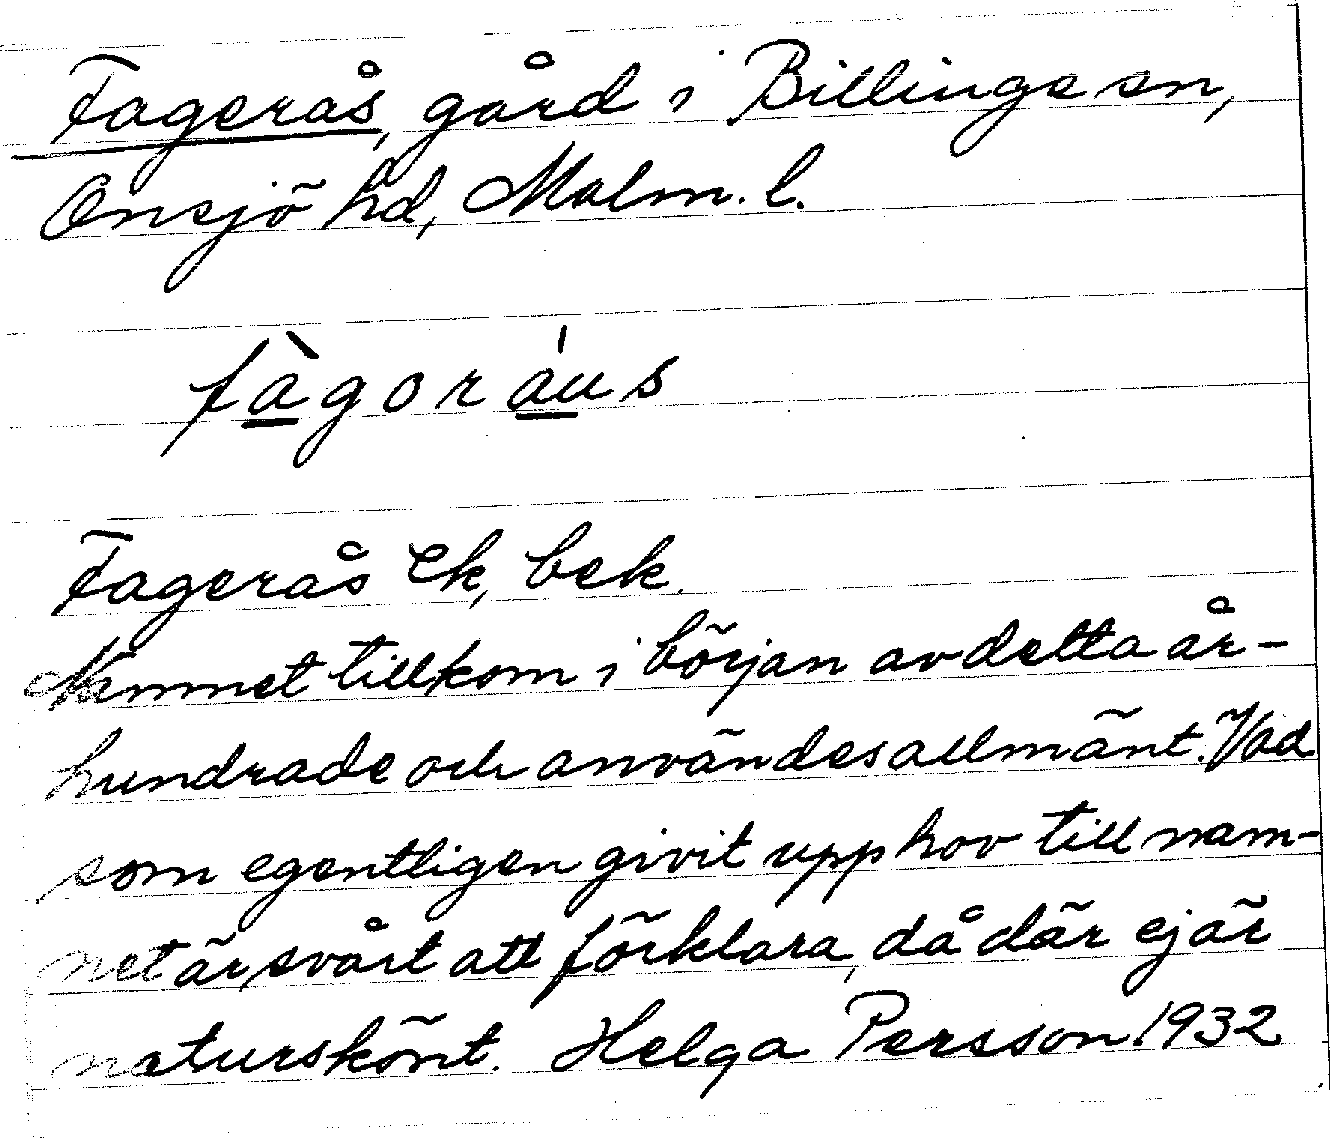 Fagerås, gård i Billinge sn,
Onsjö hd, Malm. l.
fàgoráus
Fagerås Ek, bek.
Namnet tillkom i början av detta år-
hundrade och användes allmänt. Vad
som egentligen givit upphov till nam-
net är svårt att förklara, då där ej är
naturskönt. Helga Persson 1932